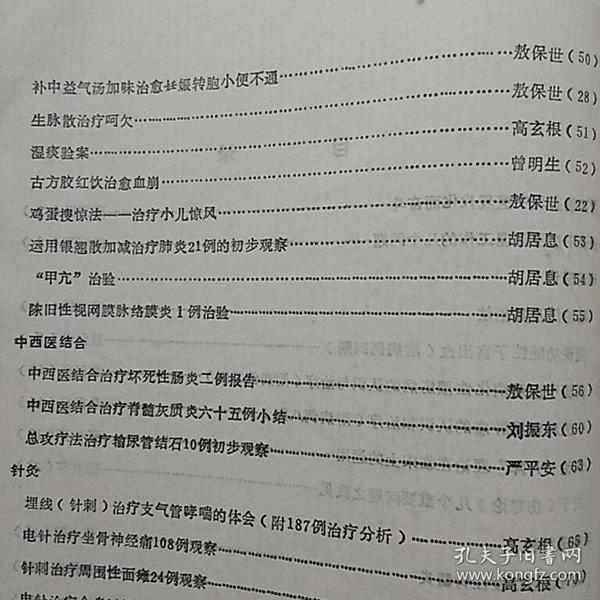 补中益气汤加味治愈妊娠转胞小便不通……敖保世(50)
生脉散治疗呵欠……敖保世(28)
湿痰验案……高玄根(51)
古方胶红饮治愈血崩……曾明生(52)
鸡蛋搜惊法——治疗小儿惊风……敖保世(22)
运用银翘散加减治疗肺炎21例的初步观察……胡居息(53)
“甲亢”治验……胡居息(54)
陈旧性视网膜脉络膜炎1例治验……胡居息(55)
中西医结合
中西医结合治疗坏死性肠炎二例报告……敖保世(56)
中西医结合治疗脊髓灰质炎六十五例小结……刘振东(60)
总攻疗法治疗输尿管结石10例初步观察……严平安(63)
针灸
埋线(针刺)治疗支气管哮喘的体会(附187例治疗分析)……高玄根(65)
电针治疗坐骨神经痛108例观察……
针刺治疗周围性面瘫24例观察……高玄根
孔夫子旧书网
www.kongfz.com